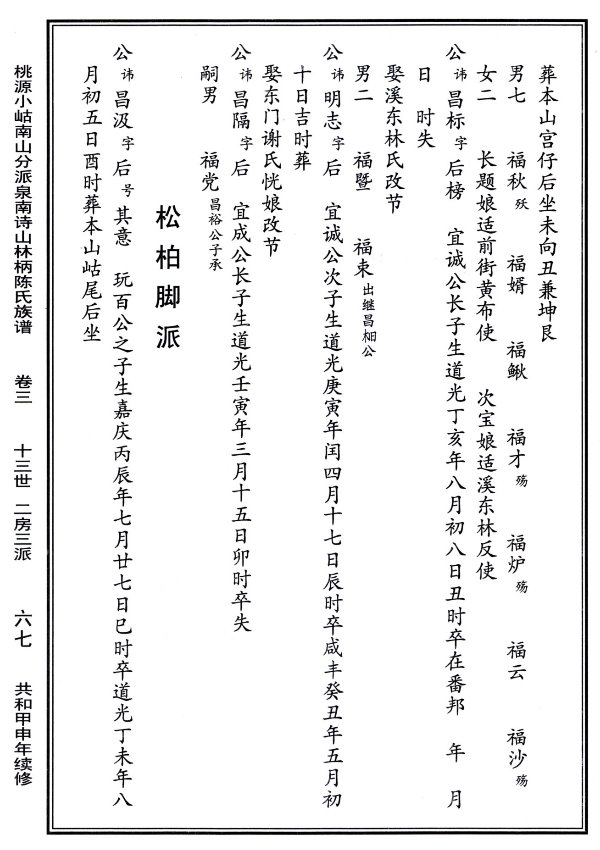 葬本山宫仔后坐未向丑兼坤艮
男七 福秋 殀 福婿 福鳅 福才 殇 福炉 殇 福云 福沙 殇
女二 长题娘适前街黄布使 次宝娘适溪东林反使
公 讳 昌标 字 后榜 宜诚公长子生道光丁亥年八月初八日丑时卒在番邦 年 月
日 时失
娶溪东林氏改节
男二 福暨 福束 出继昌栶公
公 讳 明志 字 后 宜诚公次子生道光庚寅年闰四月十七日辰时卒咸丰癸丑年五月初
十日吉时葬
娶东门谢氏恍娘改节
公 讳 昌隔 字 后 宜成公长子生道光壬寅年三月十五日卯时卒失
嗣男 福党 昌裕公子承
松柏脚派
公 讳 昌汲 字 后 号 其意 玩百公之子生嘉庆丙辰年七月廿七日巳时卒道光丁未年八
月初五日酉时葬本山岵尾后坐
桃源小岵南山分派泉南诗山林柄陈氏族谱 卷三 十三世 二房三派 六七 共和甲申年续修